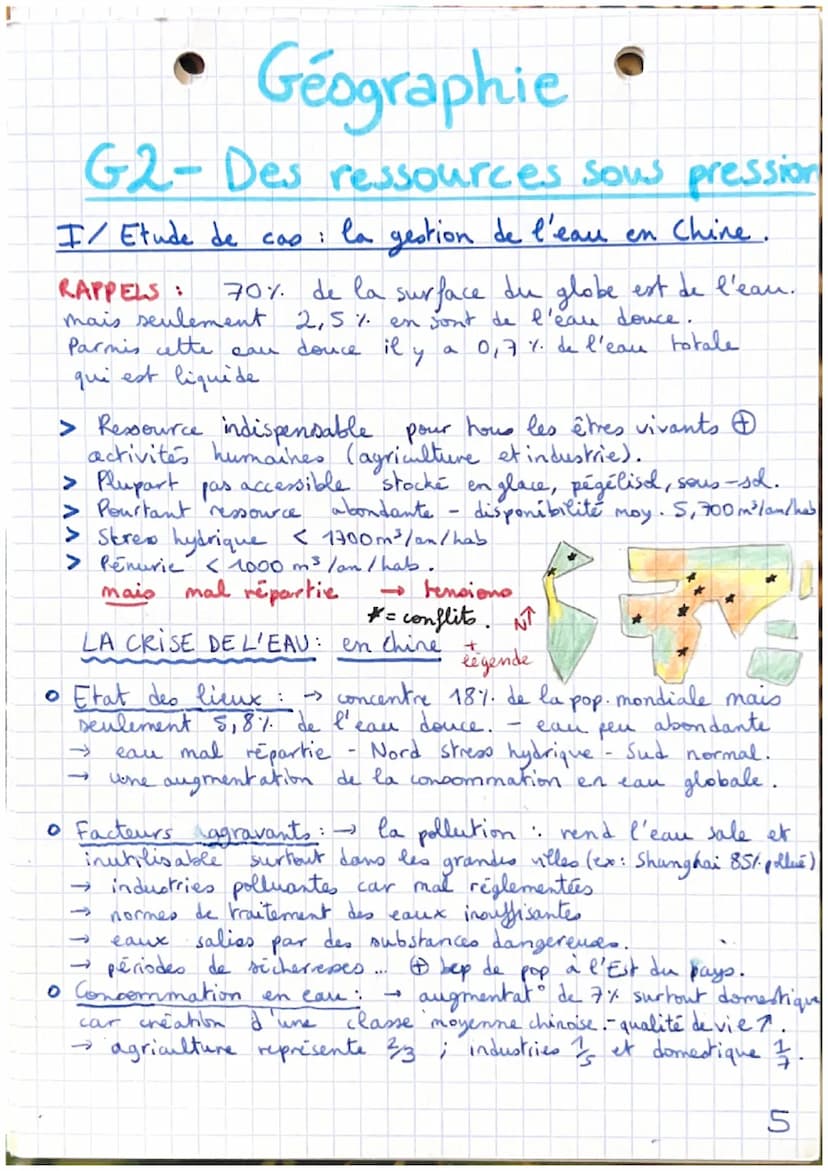 Géographie
G2- Des ressources sous pression
I/ Etude de cas : la gestion de l'eau en Chine.
RAPPELS : 70% de la surface du globe est de l'eau.
mais seulement 2,5% en sont de l'eau douce.
Parmis cette eau douce il y a 0,7% de l'eau totale
qui est liquide
> Ressource indispensable pour tous les êtres vivants ⊕
activités humaines (agriculture et industrie).
> Plupart pas accessible stocké en glace, pégélisol, sous-sol.
> Pourtant ressource abondante - disponibilité moy. 5,700 m³/an/hab
> Stress hydrique < 1700 m³/an/hab
> Pénurie < 1000 m³/an/hab.
mais mal répartie → tensions
* = conflits. N↑
+ légende
LA CRISE DE L'EAU : en chine
o Etat des lieux : → concentre 18% de la pop. mondiale mais
seulement 5,8% de l'eau douce. - eau peu abondante
→ eau mal répartie - Nord stress hydrique - Sud normal.
→ une augmentation de la consommation en eau globale.
o Facteurs aggravants : → la pollution : rend l'eau sale et
inutilisable surtout dans les grandes villes (ex : Shanghai 85% pollué)
→ industries polluantes car mal réglementées
→ normes de traitement des eaux insuffisantes
→ eaux salies par des substances dangereuses.
→ périodes de sécheresses ... ⊕ bcp de pop à l'Est du pays.
o Consommation en eau : → augmentat° de 7% surtout domestique
car création d'une classe moyenne chinoise. - qualité de vie ↑.
→ agriculture représente 2/3 ; industries 1/5 et domestique 1/7.
5